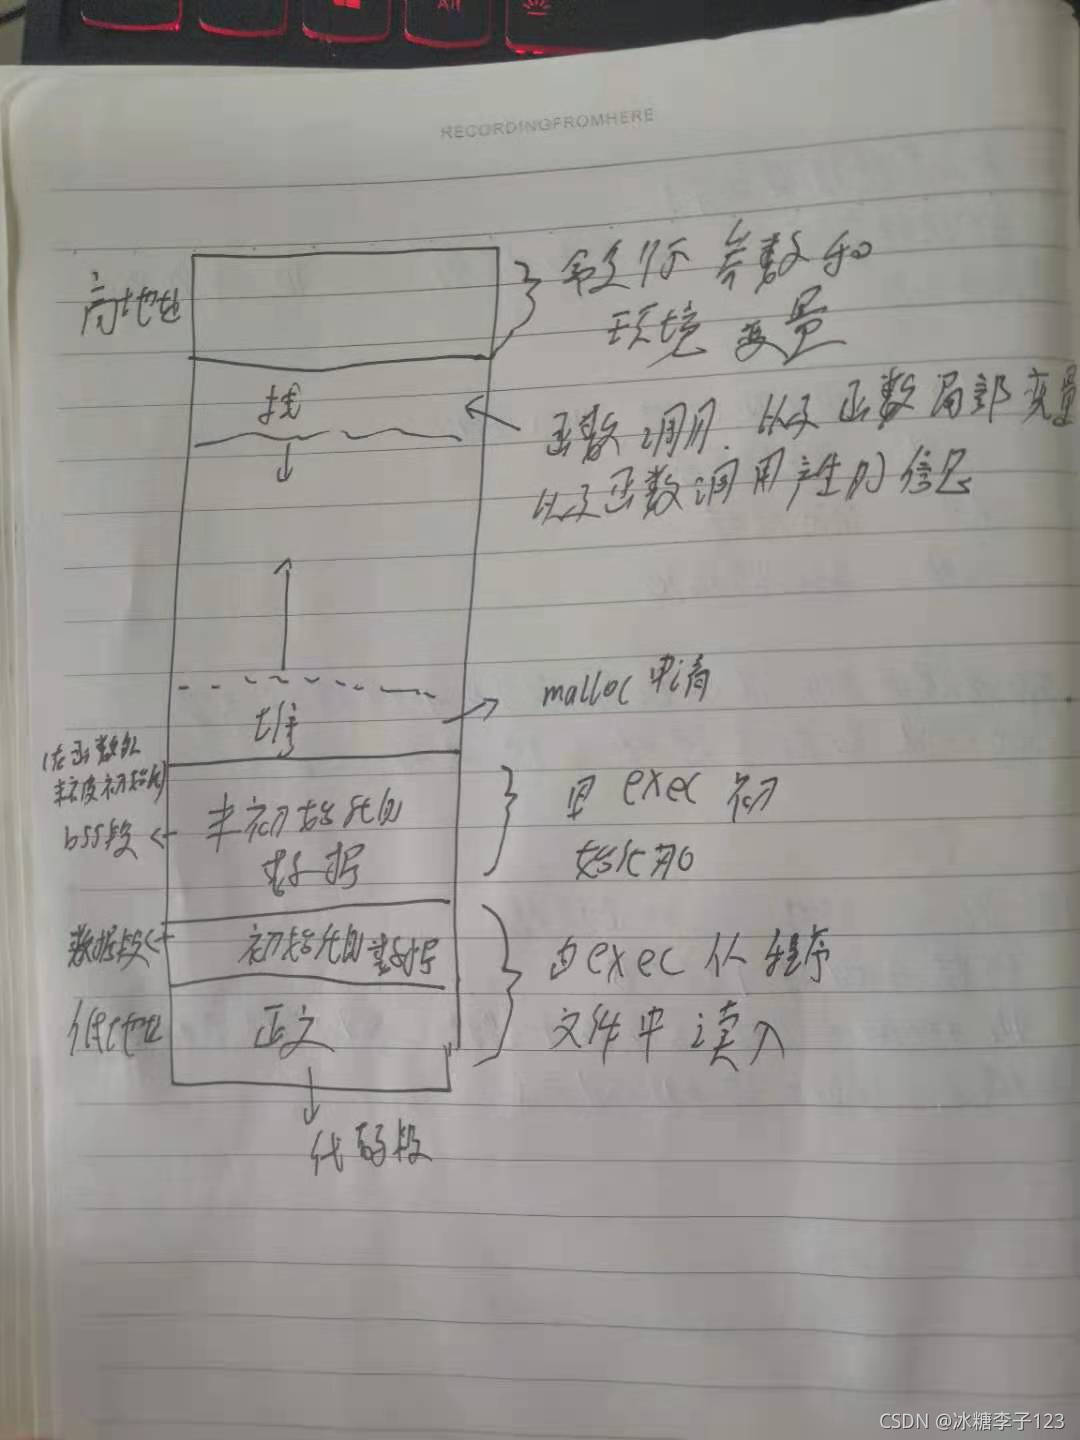 RECORDINGFROMHERE
高地址
命令行参数和
环境变量
栈
函数调用. 以及函数局部变量
以及函数调用产生的信息
malloc申请
堆
(在函数外
未被初始化)
bss段
未初始化的
数据
由exec初
始化为0
数据段
初始化的数据
由exec从程序
文件中读入
低地址
正文
代码段
CSDN @冰糖李子123